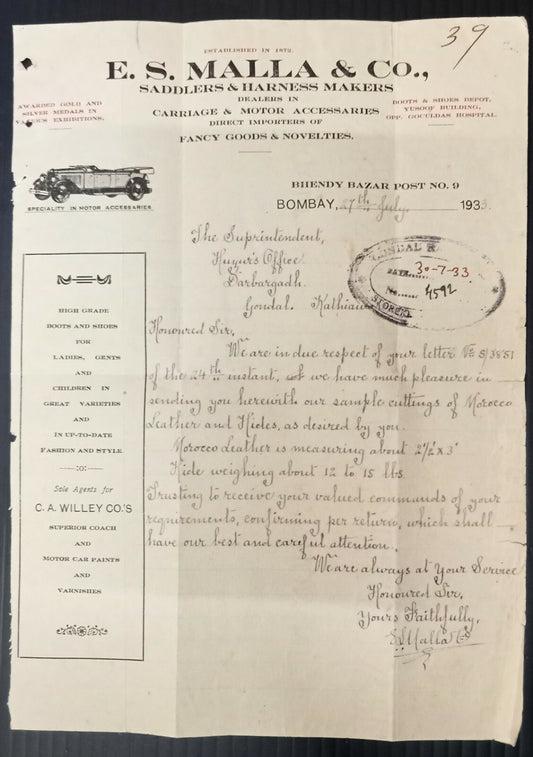 39
ESTABLISHED IN 1872.
E. S. MALLA & CO.,
SADDLERS & HARNESS MAKERS
DEALERS IN
CARRIAGE & MOTOR ACCESSARIES
DIRECT IMPORTERS OF
FANCY GOODS & NOVELTIES.
AWARDED GOLD AND
SILVER MEDALS IN
VARIOUS EXHIBITIONS.
BOOTS & SHOES DEPOT,
YUSOOF BUILDING,
OPP. GOCULDAS HOSPITAL.
SPECIALITY IN MOTOR ACCESSARIES
BHENDY BAZAR POST NO. 9
BOMBAY, 27th July 1933
The Suprintendent,
Huzur's Office
Darbargadh.
Gondal. Kathiawar
GONDAL
DATE 30-7-33
No. 4592
STORES
Honoured Sir,
We are in due respect of your letter No S/3851
of the 24th instant, & we have much pleasure in
sending you herewith our sample cuttings of Morocco
Leather and Hides, as desired by you.
Morocco Leather is measuring about 2½ x 3'
Hide weighing about 12 to 15 lbs.
Trusting to receive your valued commands of your
requirements, confirming per return, which shall
have our best and careful attention.
We are always at Your Service
Honoured Sir,
Yours Faithfully,
E.S. Malla & Co
HIGH GRADE
BOOTS AND SHOES
FOR
LADIES, GENTS
AND
CHILDREN IN
GREAT VARIETIES
AND
IN UP-TO-DATE
FASHION AND STYLE
Sole Agents for
C. A. WILLEY CO.'S
SUPERIOR COACH
AND
MOTOR CAR PAINTS
AND
VARNISHES